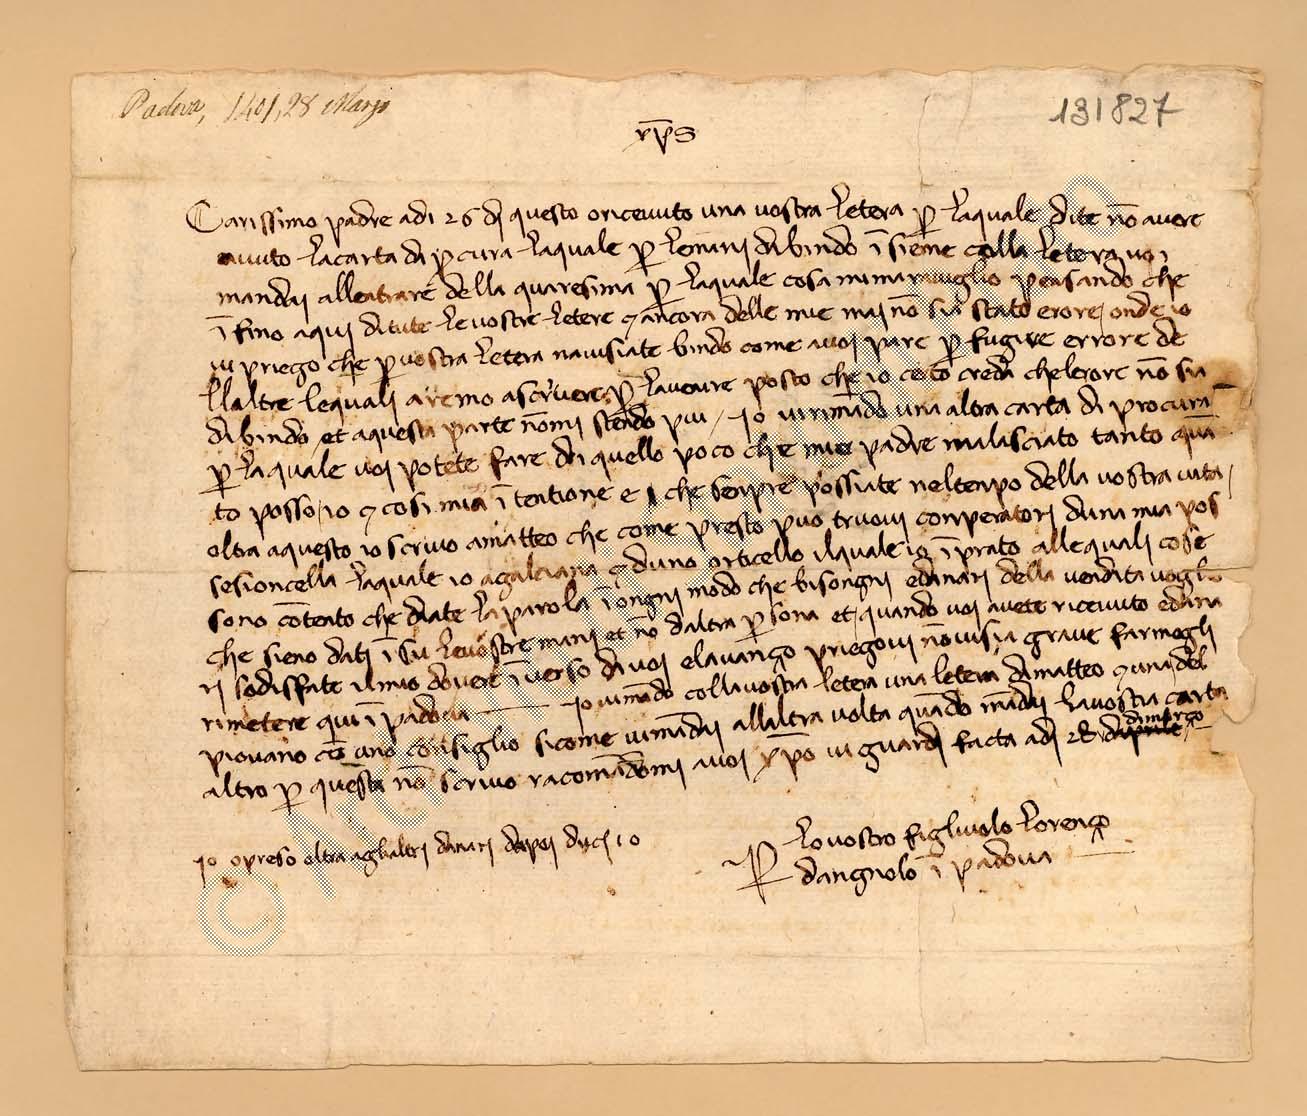 Padova, 1401, 28 Marzo
131827
xp̄s
Carissimo padre adi 26 di questo oricevuto una vostra letera p laquale dite nō avere
avuto lacarta di pcura laquale p lemani dibindo ī sieme colla letera voi
mandai allentrare della quaresima p laquale cosa mimaraviglio pensando che
ī fino aqui ditute levostre letere ancora delle mie mai nō sia stato erore onde io
vi priego che p vostra letera navisiate bindo come avoi pare p fugire errore de
llaltre lequali aremo ascrivere p lavenire posto che io certo creda chelerore nō sia
dibindo et aquesta parte nōmi stendo piu / Io virimādo una altra carta di procura
p laquale voi potete fare di quello poco che mio padre malasciato tanto quā
to posso io cosi mia ī tentione e che senpre possiate neltenpo della vostra vita /
oltra aquesto io scrivo amatteo che come presto puo truovi conperatori duna mia pos
sesioncella laquale io agalciana duno orticello ilquale io ī prato allequali cose
sono cōtento che diate laparola ī ongni modo che bisongni edanari della vendita voglio
che sieno dati ī su levostre mani et nō daltra psona et quando voi avete ricevuto edana
ri sodisfate ilmio dovere īverso di voi elavanzo priegovi nōvisia grave farmegli
rimetere qui ī padova —— Io vimādo collavostra letera una letera dimatteo una del
piovano cō uno consiglio sicome vimādai allaltra volta quādo mādai lavostra carta
altro p questa nō scrivo racomādomi avoi xp̄o vi guardi facta adi 28 daprile dimarzo
Io opreso oltra aglialtri danari dapoi duci 10
lovostro figliuolo lorenzo
dangnolo ī padova